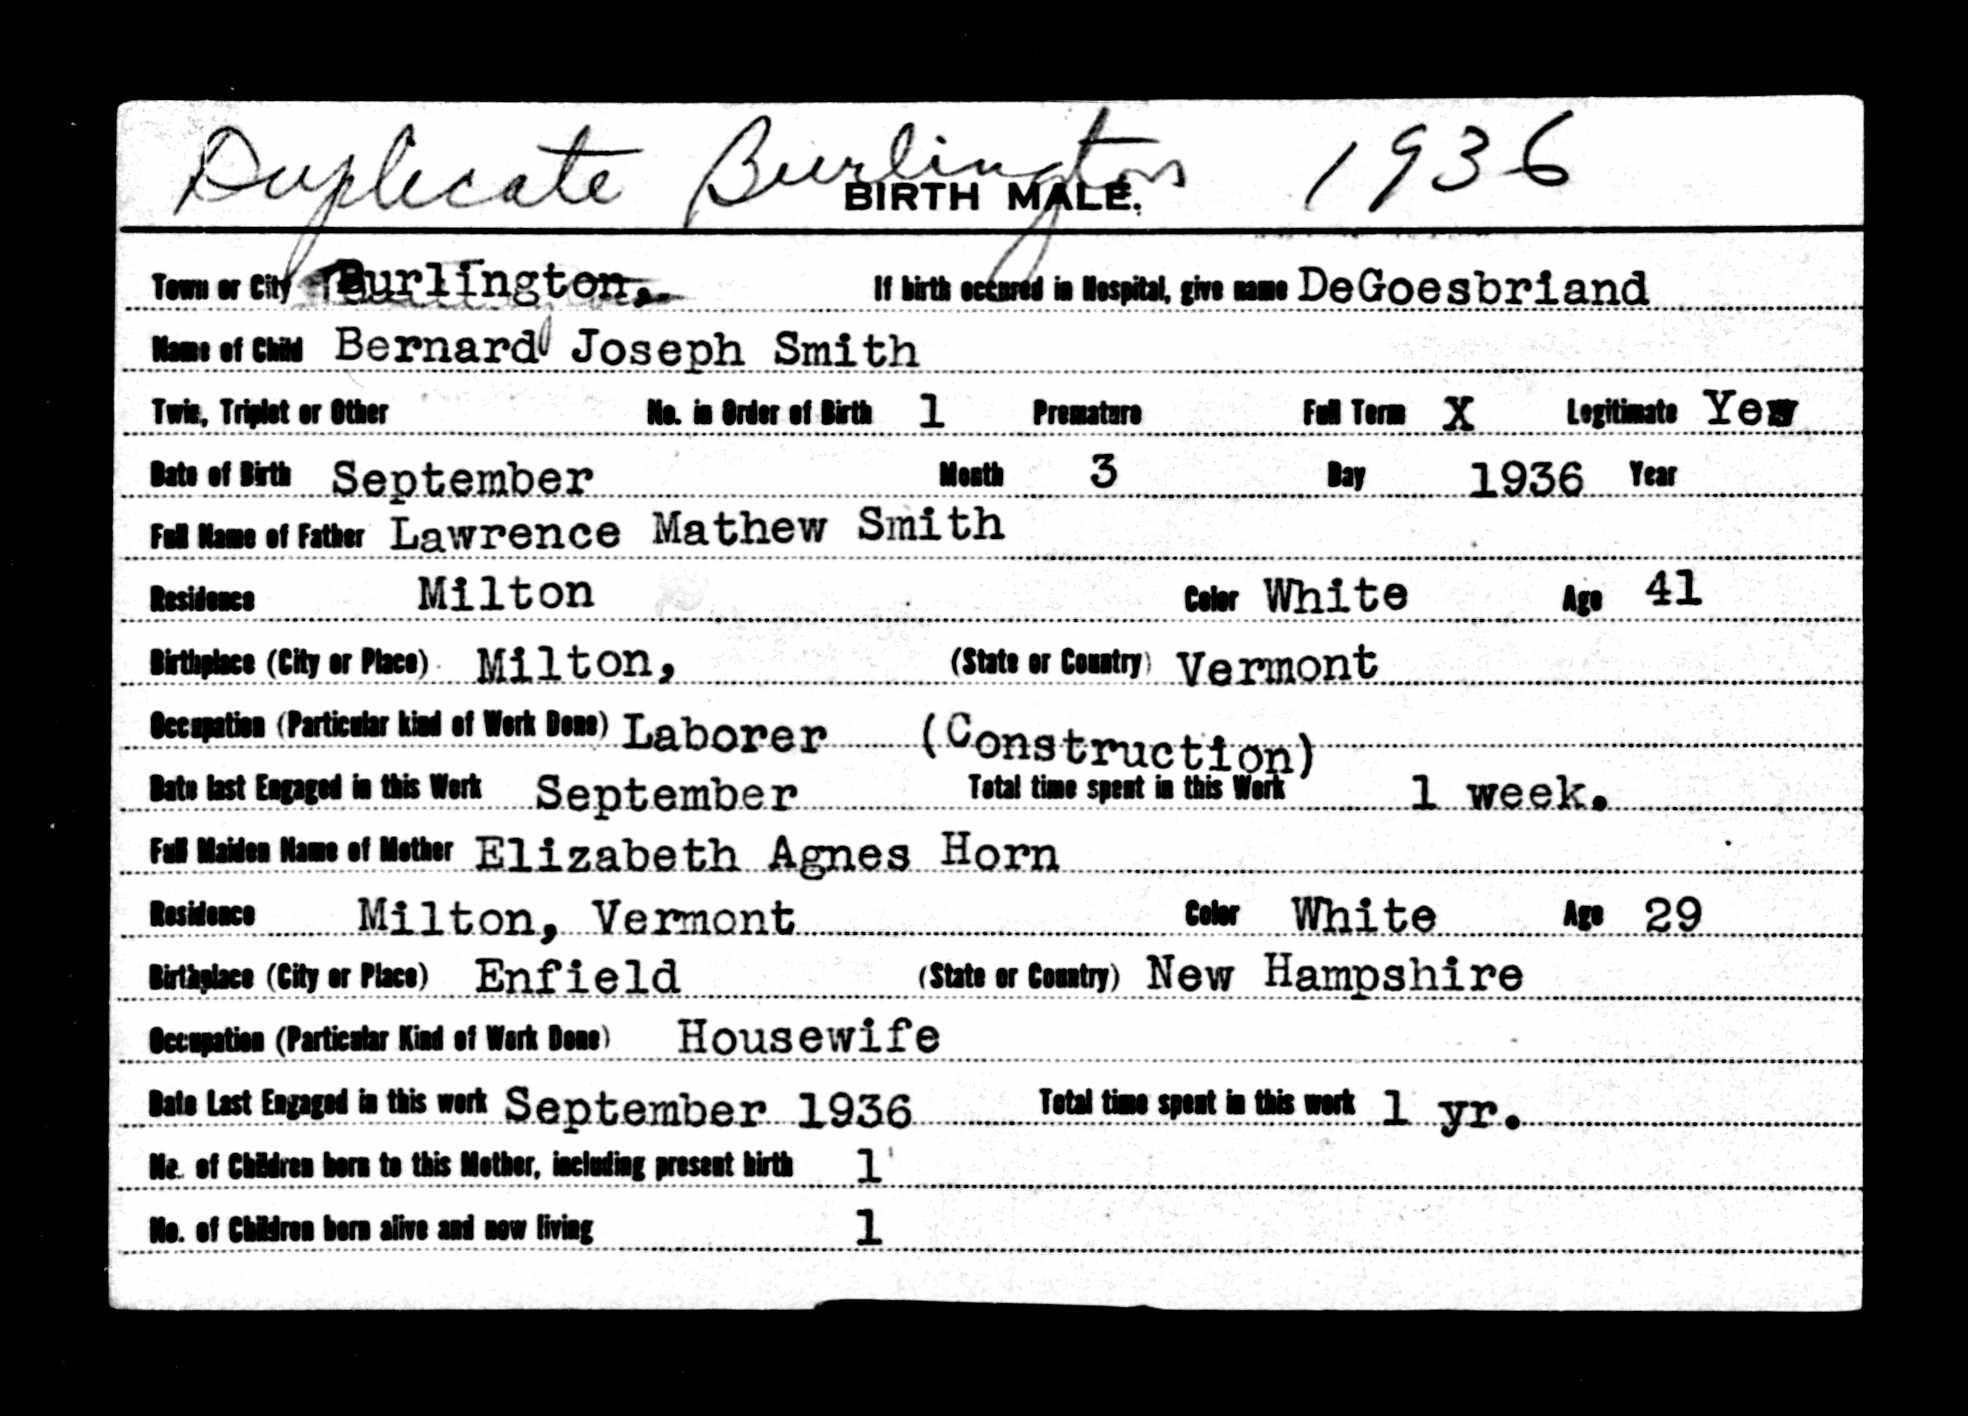 Duplicate Burlington 1936
BIRTH MALE.
Town or City Burlington, If birth occured in Hospital, give name DeGoesbriand
Name of Child Bernard Joseph Smith
Twin, Triplet or Other No. in Order of Birth 1 Premature Full Term X Legitimate Yes
Date of Birth September Month 3 Day 1936 Year
Full Name of Father Lawrence Mathew Smith
Residence Milton Color White Age 41
Birthplace (City or Place) Milton, (State or Country) Vermont
Occupation (Particular kind of Work Done) Laborer (Construction)
Date last Engaged in this Work September Total time spent in this Work 1 week.
Full Maiden Name of Mother Elizabeth Agnes Horn
Residence Milton, Vermont Color White Age 29
Birthplace (City or Place) Enfield (State or Country) New Hampshire
Occupation (Particular Kind of Work Done) Housewife
Date Last Engaged in this work September 1936 Total time spent in this work 1 yr.
No. of Children born to this Mother, including present birth 1
No. of Children born alive and now living 1